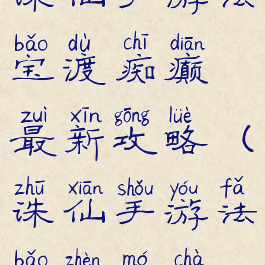 bǎo dù chī diān
宝渡痴癫
zuì xīn gōng lüè
最新攻略（
zhū xiān shǒu yóu fǎ
诛仙手游法
bǎo zhèn mó chà